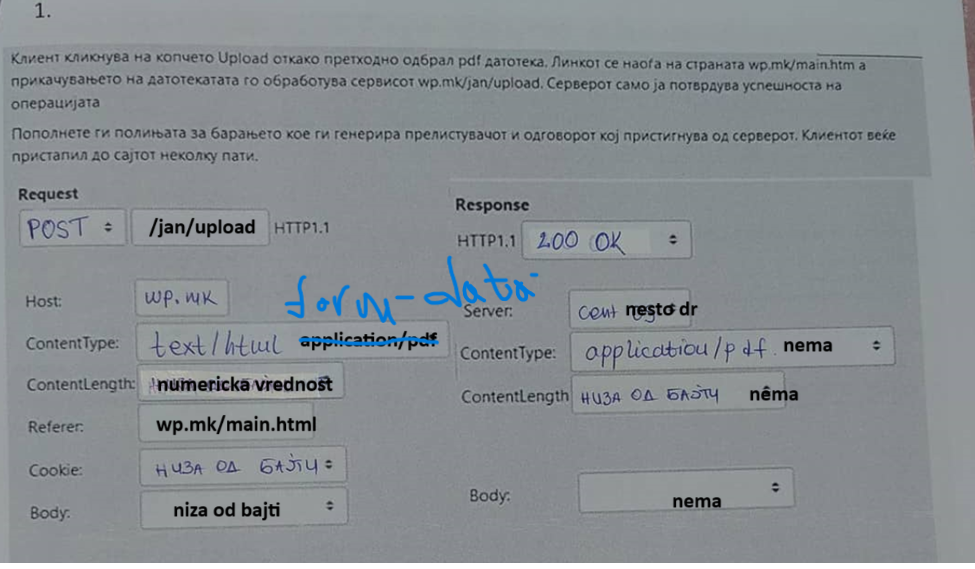 1.
Клиент кликнува на копчето Upload откако претходно одбрал pdf датотека. Линкот се наоѓа на страната wp.mk/main.htm а
прикачувањето на датотекатата го обработува сервисот wp.mk/jan/upload. Серверот само ја потврдува успешноста на
операцијата
Пополнете ги полињата за барањето кое ги генерира прелистувачот и одговорот кој пристигнува од серверот. Клиентот веќе
пристапил до сајтот неколку пати.
Request
POST /jan/upload HTTP1.1
Host: wp.mk
form-data
ContentType: text/html application/pdf
ContentLength: numericka vrednost
Referer: wp.mk/main.html
Cookie: НИЗА ОД БАЈТИ
Body: niza od bajti
Response
HTTP1.1 200 OK
Server: cent nesto dr
ContentType: application/pdf nema
ContentLength НИЗА ОД БАЈТИ nêma
Body: nema